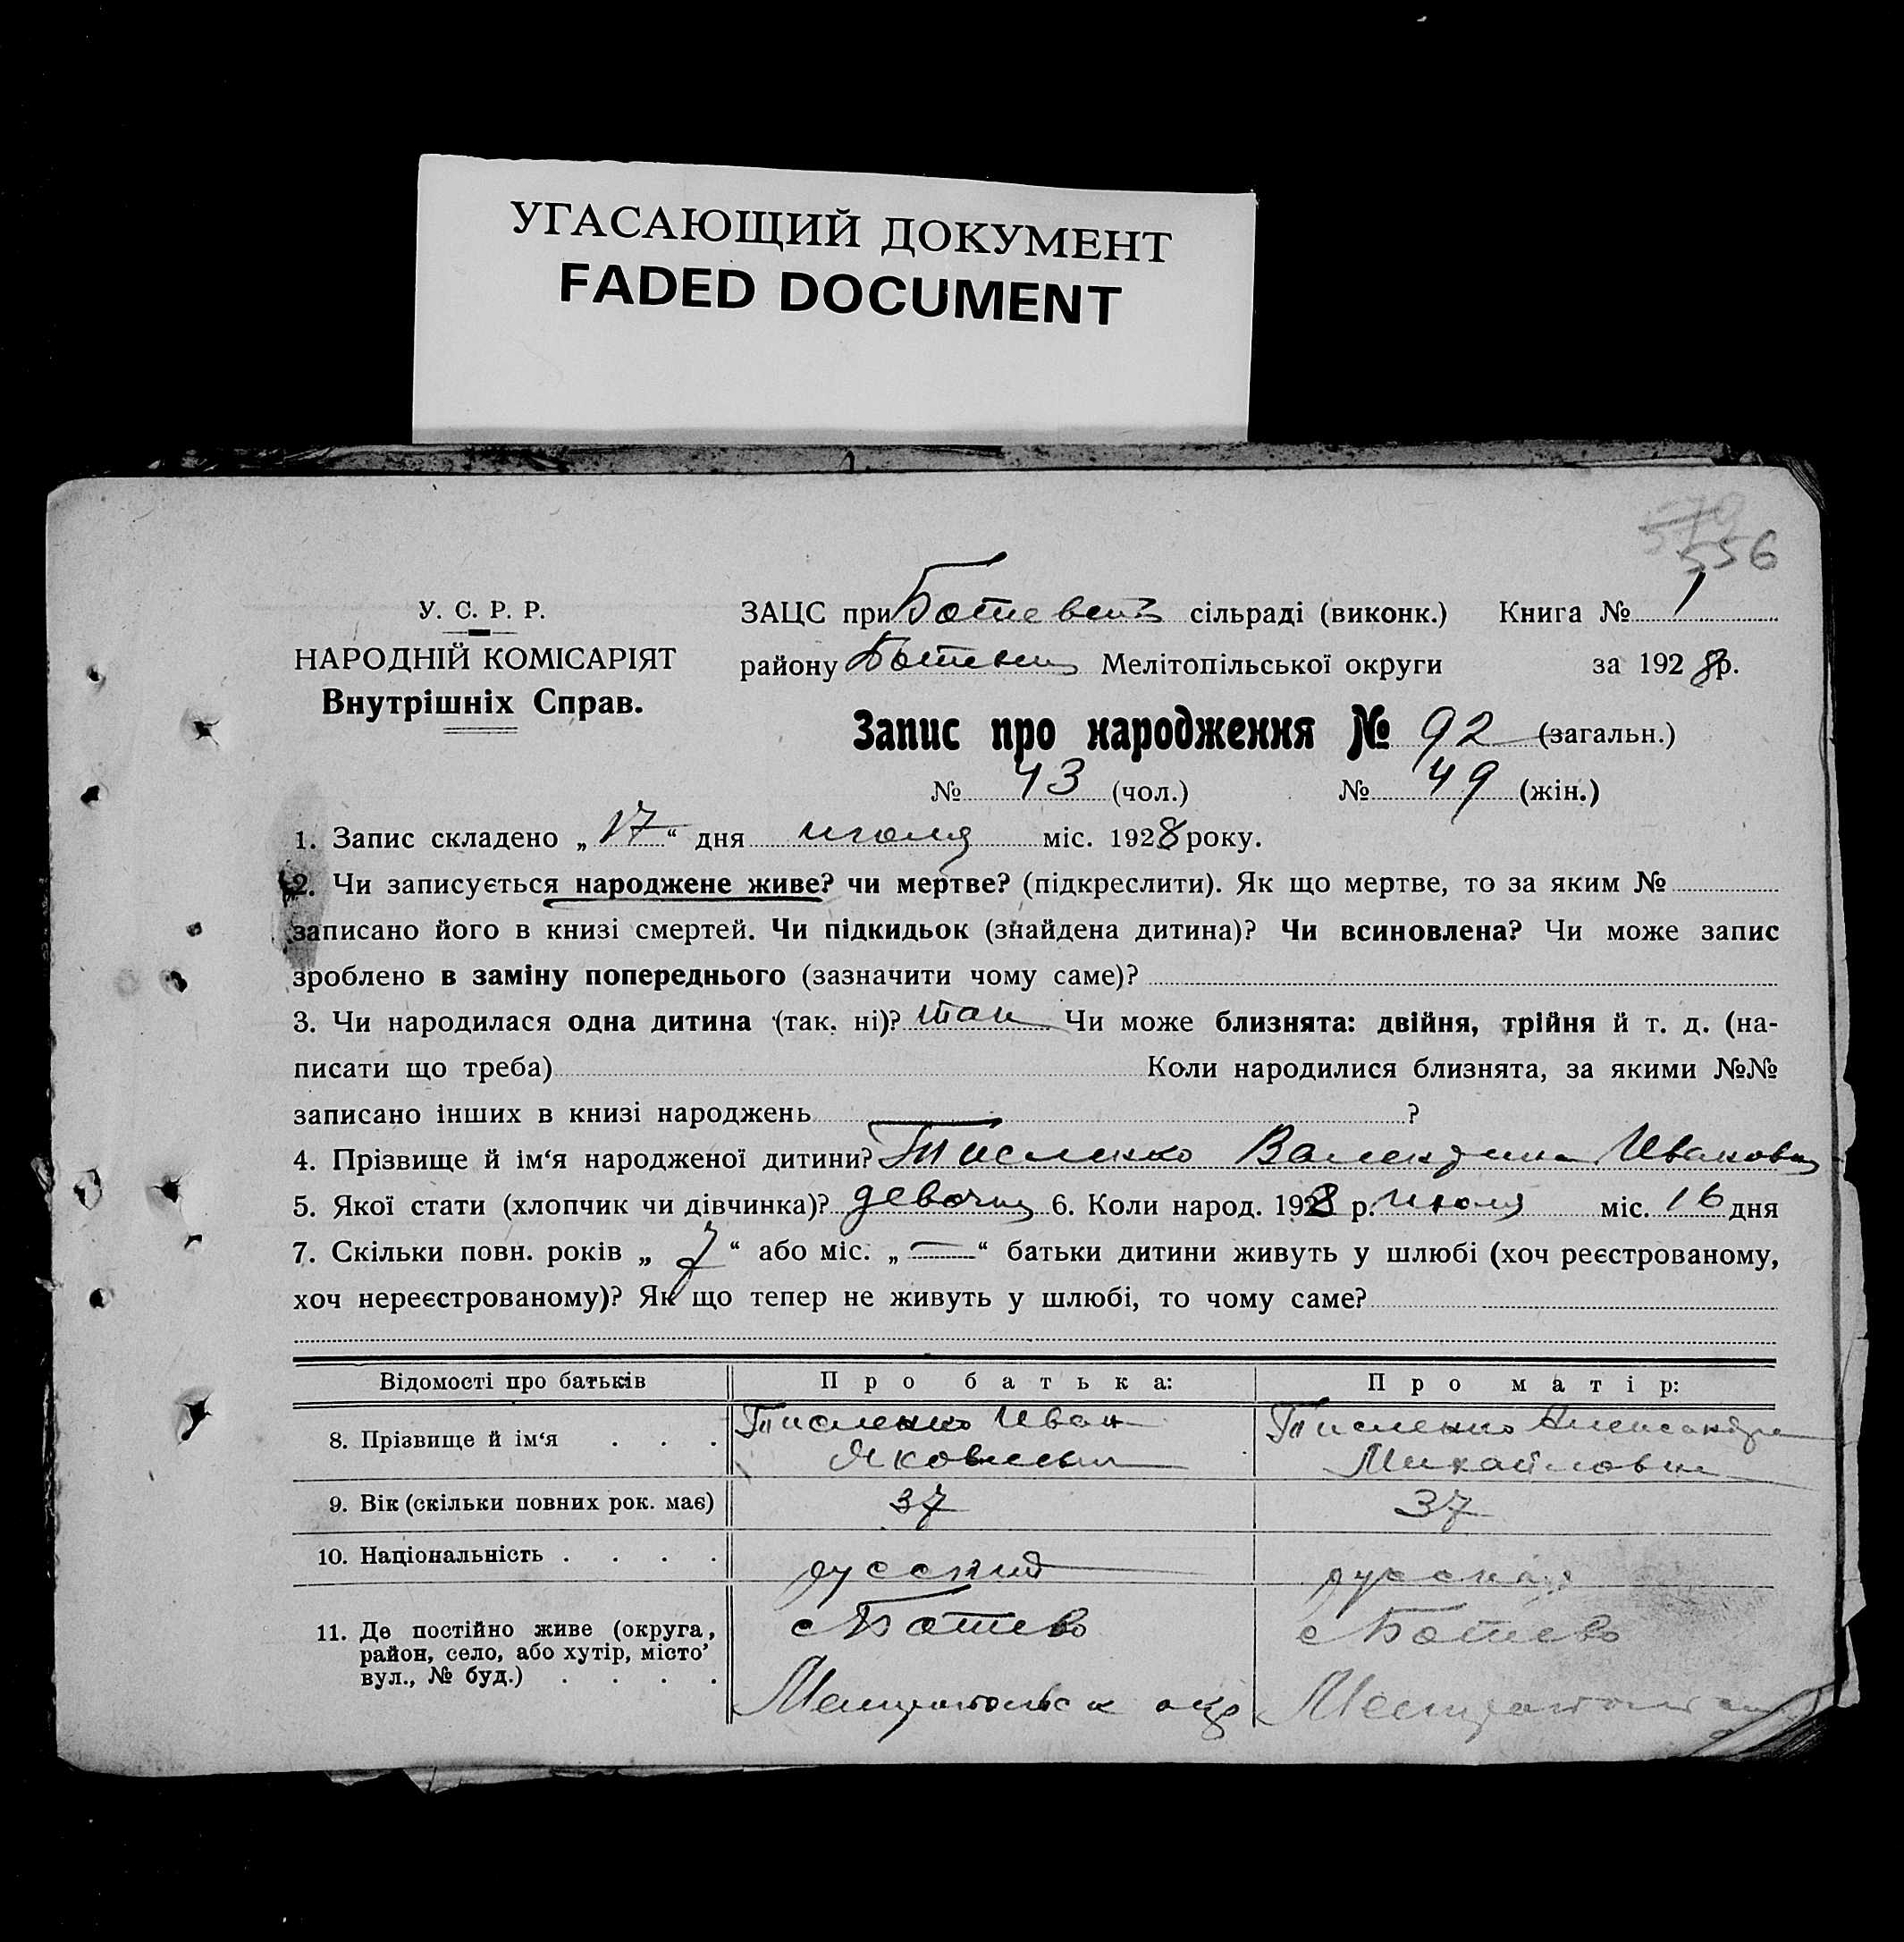 УГАСАЮЩИЙ ДОКУМЕНТ
FADED DOCUMENT
579
556
У. С. Р. Р.
НАРОДНІЙ КОМІСАРІЯТ
Внутрішніх Справ.
ЗАЦС при Ботевск сільраді (виконк.) Книга № 1
району Ботевск Мелітопільської округи за 1928 р.
Запис про народження № 92 (загальн.)
№ 43 (чол.) № 49 (жін.)
1. Запис складено „17“ дня июля міс. 1928 року.
2. Чи записується народжене живе? чи мертве? (підкреслити). Як що мертве, то за яким №
записано його в книзі смертей. Чи підкидьок (знайдена дитина)? Чи всиновлена? Чи може запис
зроблено в заміну попереднього (зазначити чому саме)?
3. Чи народилася одна дитина (так, ні)? так Чи може близнята: двійня, трійня й т. д. (на-
писати що треба) Коли народилися близнята, за якими №№
записано інших в книзі народжень ?
4. Прізвище й ім‘я народженої дитини? Тисленко Валендина Ивановн
5. Якої стати (хлопчик чи дівчинка)? девочка 6. Коли народ. 1928 р. июля міс. 16 дня
7. Скільки повн. років „7“ або міс. „—“ батьки дитини живуть у шлюбі (хоч реєстрованому,
хоч нереєстрованому)? Як що тепер не живуть у шлюбі, то чому саме?
Відомості про батьків Про батька: Про матір:
8. Прізвище й ім‘я . . . Тисленко Иван Тисленко Александра
Яковлевич Михайловна
9. Вік (скільки повних рок. має) 37 37
10. Національність . . . . русский русская
11. Де постійно живе (округа, район, село, або хутір, місто’ вул., № буд.) . . . . с Ботево с Ботево
Мелитопольск окр Мелитопольск